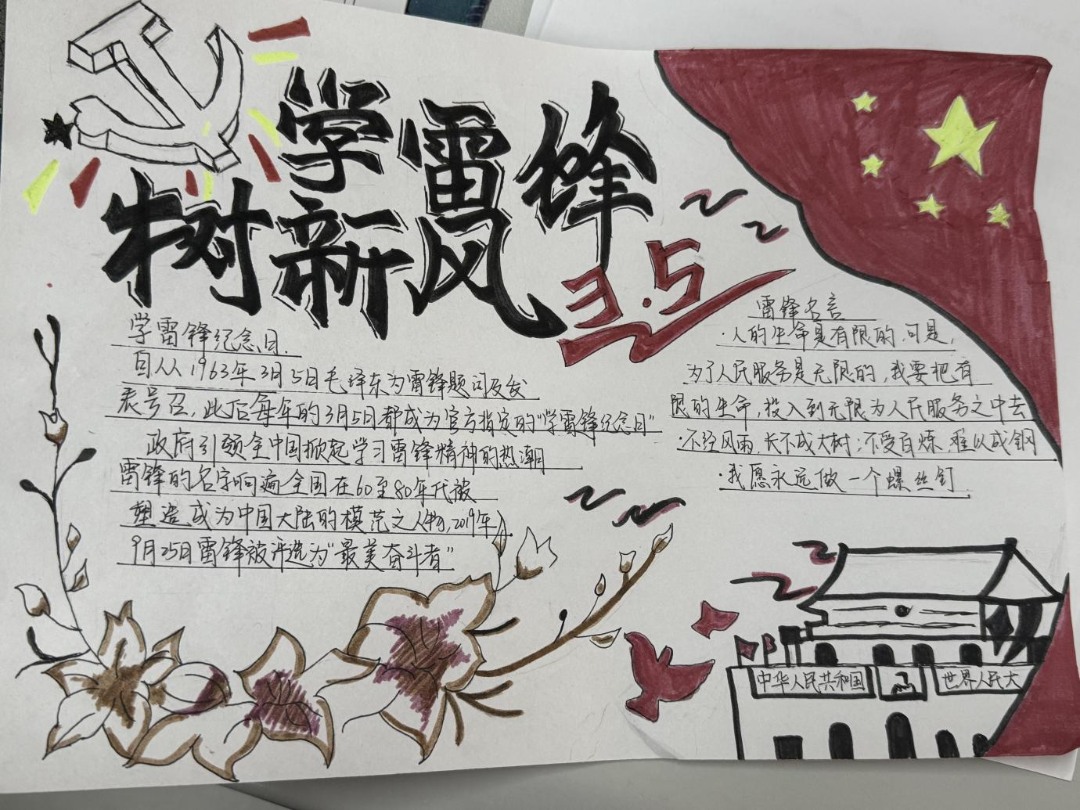 学雷锋
树新风
3.5
学雷锋纪念日.
自从1963年3月5日毛泽东为雷锋题词及发
表号召,此后每年的3月5日都成为官方指定的"学雷锋纪念日"
政府引领全中国掀起学习雷锋精神的热潮
雷锋的名字响遍全国在60至80年代被
塑造成为中国大陆的模范文人物,2019年
9月25日雷锋被评选为"最美奋斗者"
雷锋名言
·人的生命是有限的.可是,
为了人民服务是无限的,我要把有
限的生命,投入到无限为人民服务之中去
·不经风雨,长不成大树;不受百炼,难以成钢
·我愿永远做一个螺丝钉.
中华人民共和国
世界人民大